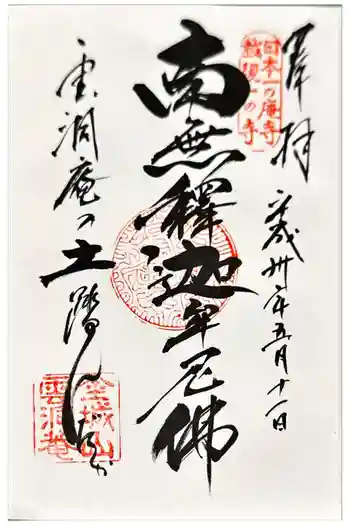 奉拝
平成卅年五月十一日
日本一の庵寺
越後一の寺
南無釋迦牟尼佛
雲洞庵の土踏んだか
金城山
雲洞庵